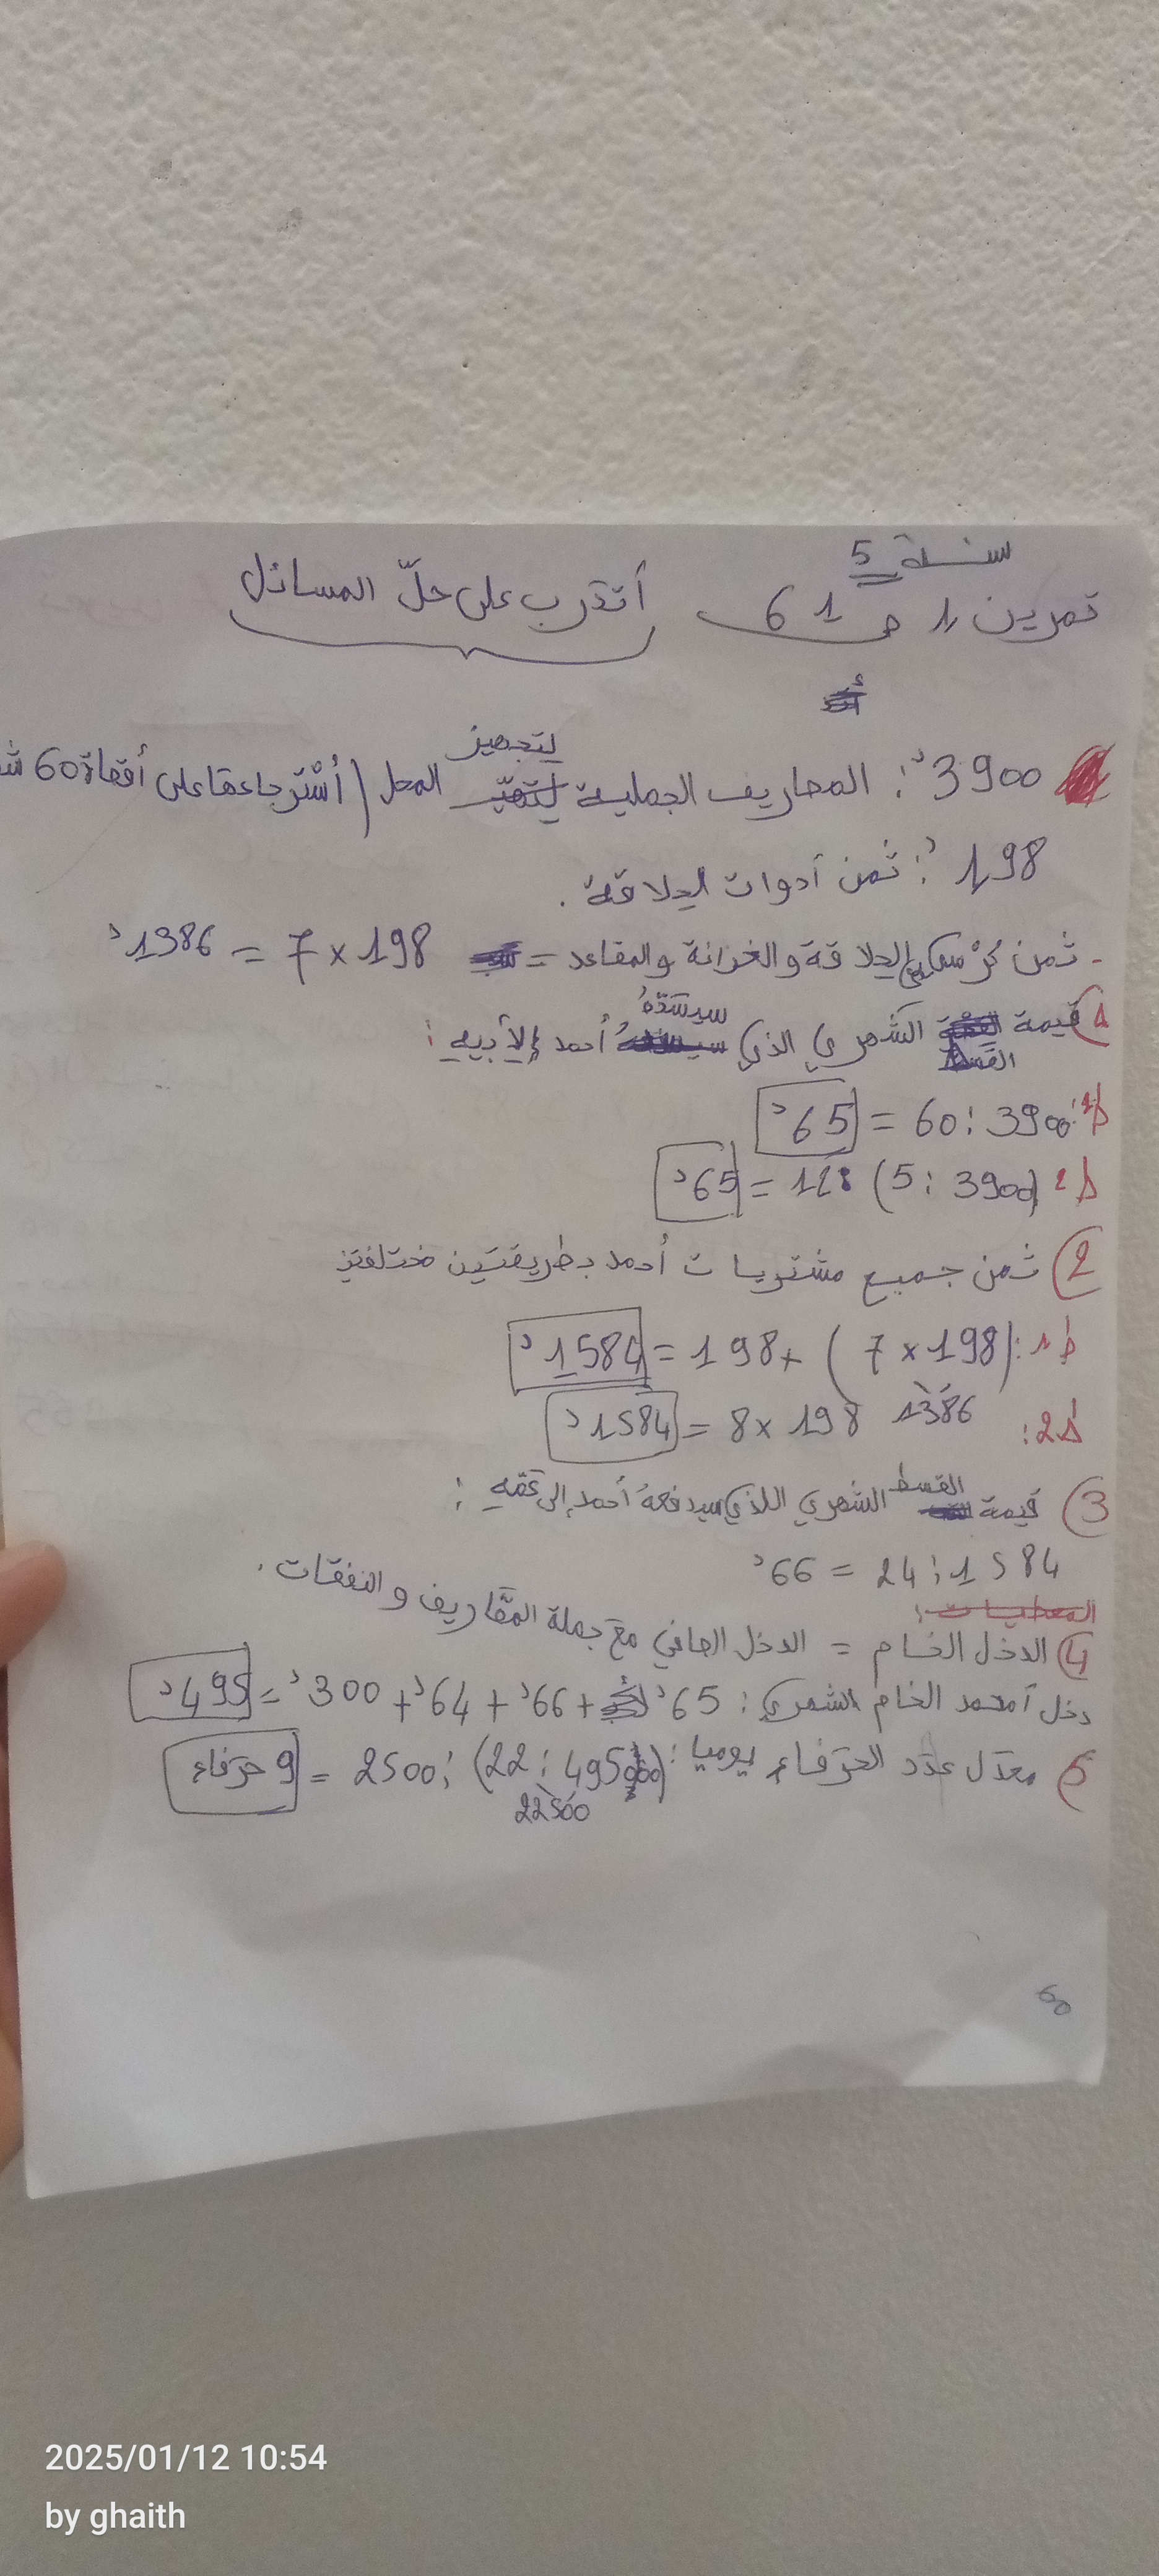 سنة 5
تمرين 1 ص 61 أتدرب على حلّ المسائل
3900د: المصاريف الجملية لتجهيز المحل (أُسْترجاعها على أقساط 60 شـ
198د: ثمن أدوات الحلاقة.
- ثمن كرسي الحلاقة والخزانة والمقاعد = 198 × 7 = 1386د
1) قيمة القسط الشهري الذي سيسدّدهُ أحمد لأبيه:
ط1: 3900 : 60 = 65د
ط2 (3900 : 5) : 12 = 65د
2) ثمن جميع مشتريات أحمد بطريقتين مختلفتين
ط1: (198 × 7) + 198 = 1584د
1386
ط2: 198 × 8 = 1584د
3) قيمة القسط الشهري اللذي سيدفعهُ أحمد إلى عمّهِ:
1584 : 24 = 66د
المعطيات:
4) الدخل الخام = الدخل الصافي مع جملة المصاريف والنفقات.
دخل أحمد الخام الشهري: 65د + 66د + 64د + 300د = 495د
5) معدّل عدد الحرفاء يوميا: (495000 : 22) : 2500 = 9 حرفاء
22500
2025/01/12 10:54
by ghaith